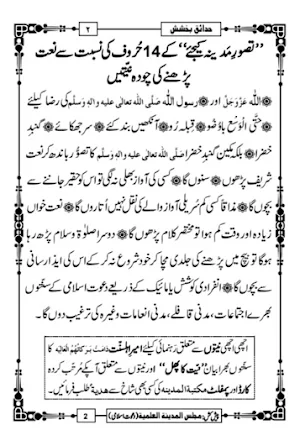 حدائقِ بخشش ۲
”تصوّرِ مدینہ کیجئے“ کے 14 حُروف کی نسبت سے نعت
پڑھنے کی چودہ نیّتیں
اللہ عَزَّوَجَلَّ اور رسول اللہ صَلَّی اللہ تعالٰی علیہ واٰلہٖ وسلَّم کی رضا کیلئے
حتَّی الْوَسْع باوُضو قبلہ رُو آنکھیں بند کئے سر جھکائے گنبدِ
خضرا بلکہ مکینِ گنبدِ خضرا صَلَّی اللہ تعالٰی علیہ واٰلہٖ وسلَّم کا تصوّر باندھ کر نعت
شریف پڑھوں سنوں گا کسی کی آواز بھلی نہ لگی تو اس کو حقیر جاننے سے
بچوں گا مذاقاً کسی کم سریلی آواز والے کی نقل نہیں اُتاروں گا نعت خواں
زیادہ اور وقت کم ہوا تو مختصر کلام پڑھوں گا دوسرا صلوٰۃ وسلام پڑھ رہا
ہوگا تو بیچ میں پڑھنے کی جلدی مچا کر خود شروع نہ کر کے اس کی ایذا رسانی
سے بچوں گا انفرادی کوشش یا مائیک کے ذریعے دعوتِ اسلامی کے سنّتوں
بھرے اجتماعات، مدنی قافلے، مدنی انعامات وغیرہ کی ترغیب دوں گا۔
اچھی اچھی نیّتوں سے متعلق رہنمائی کیلئے امیرِ اہلسنّت دَامَتْ بَرَکَاتُہُمُ الْعَالِیَہ کا
سنّتوں بھرا بیان ”نیّت کا پھل“ اور نیتوں سے متعلق آپ کے مُرتّب کردہ
کارڈ اور پمفلٹ مکتبۃ المدینہ کی کسی بھی شاخ سے ھدیۃً طلب فرمائیں۔
پیش کش: مجلس المدینۃ العلمیۃ (دعوتِ اسلامی) 2